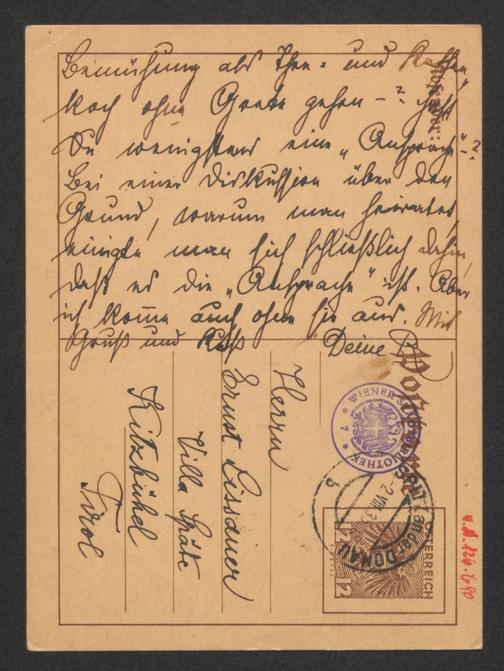 Bemühung als Thee- und Kaffee-
koch ohne Grete gehen -? Hast
Du wenigstens eine „Ansprache"-?
Bei einer Diskussion über den
Grund, warum man heiratet,
einigte man sich schließlich dahin,
daß es die „Ansprache" ist. Aber
ich komme auch ohne sie aus. Mit
Gruß und Kuß Deine
Absender:
Postkarte
Herrn
Ernst Lissauer
Villa Späte
Kitzbühel
Tirol
WIENER STADTBIBLIOTHEK
* 7 *
DONAU
2. VIII. 3
b
ÖSTERREICH
12